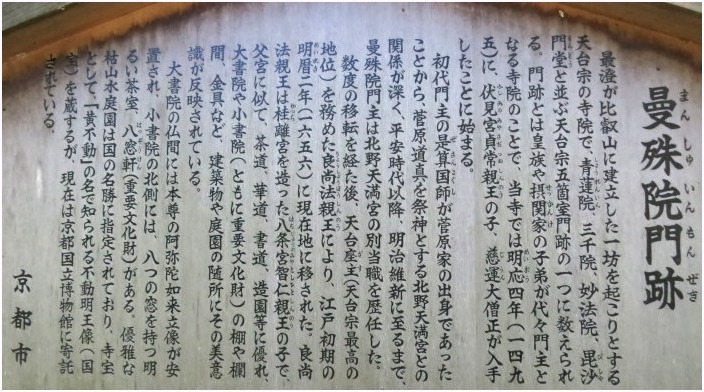 曼殊院門跡
最澄が比叡山に建立した一坊を起こりとする
天台宗の寺院で、青蓮院、三千院、妙法院、毘沙
門堂と並ぶ天台宗五箇室門跡の一つに数えられ
る。門跡とは皇族や摂関家の子弟が代々門主と
なる寺院のことで、当寺では明応四年(一四九
五)に、伏見宮貞常親王の子、慈運大僧正が入寺
したことに始まる。
初代門主の是算国師が菅原家の出身であった
ことから、菅原道真を祭神とする北野天満宮との
関係が深く、平安時代以降、明治維新に至るまで、
曼殊院門主は北野天満宮の別当職を歴任した。
数度の移転を経た後、天台座主(天台宗最高の
地位)を務めた良尚法親王により、江戸初期の
明暦二年(一六五六)に現在地に移された。良尚
法親王は桂離宮を造った八条宮智仁親王の子で、
父宮に似て、茶道、華道、書道、造園等に優れ、
大書院や小書院(ともに重要文化財)の棚や欄
間、金具など、建築物や庭園の随所にその美意
識が反映されている。
大書院の仏間には本尊の阿弥陀如来立像が安
置され、小書院の北側には、八つの窓を持つ明
るい茶室、八窓軒(重要文化財)がある。優雅な
枯山水庭園は国の名勝に指定されており、寺宝
として、「黄不動」の名で知られる不動明王像(国
宝)を蔵するが、現在は京都国立博物館に寄託
されている。
京都市